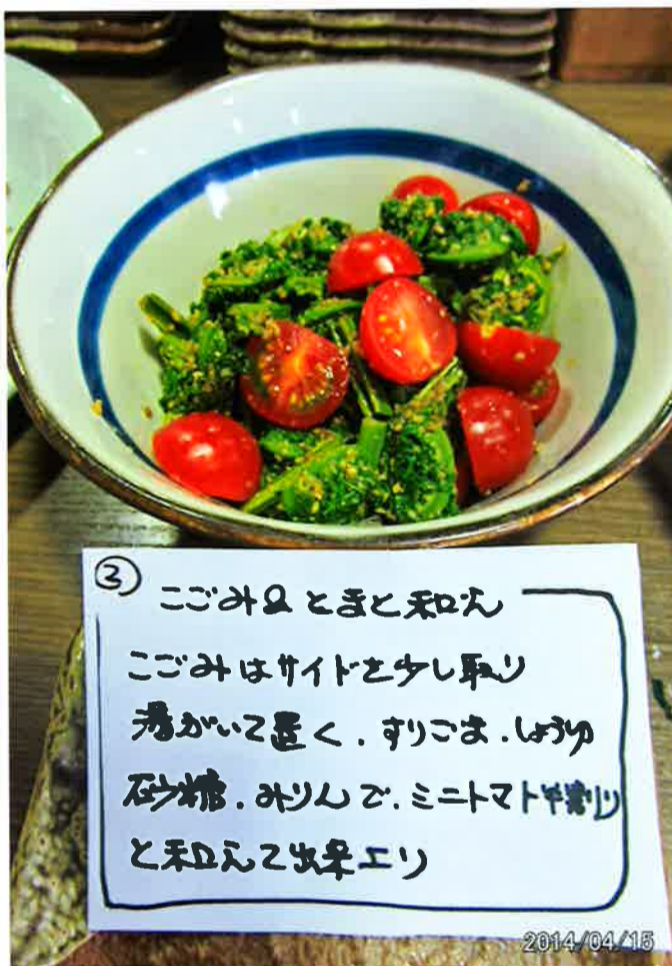 ③ こごみ&とまと和え
こごみはサイドを少し取り
湯がいて置く、すりごま、しょうゆ
砂糖、みりんで、ミニトマト半割り
と和えて出来上り
2014/04/15